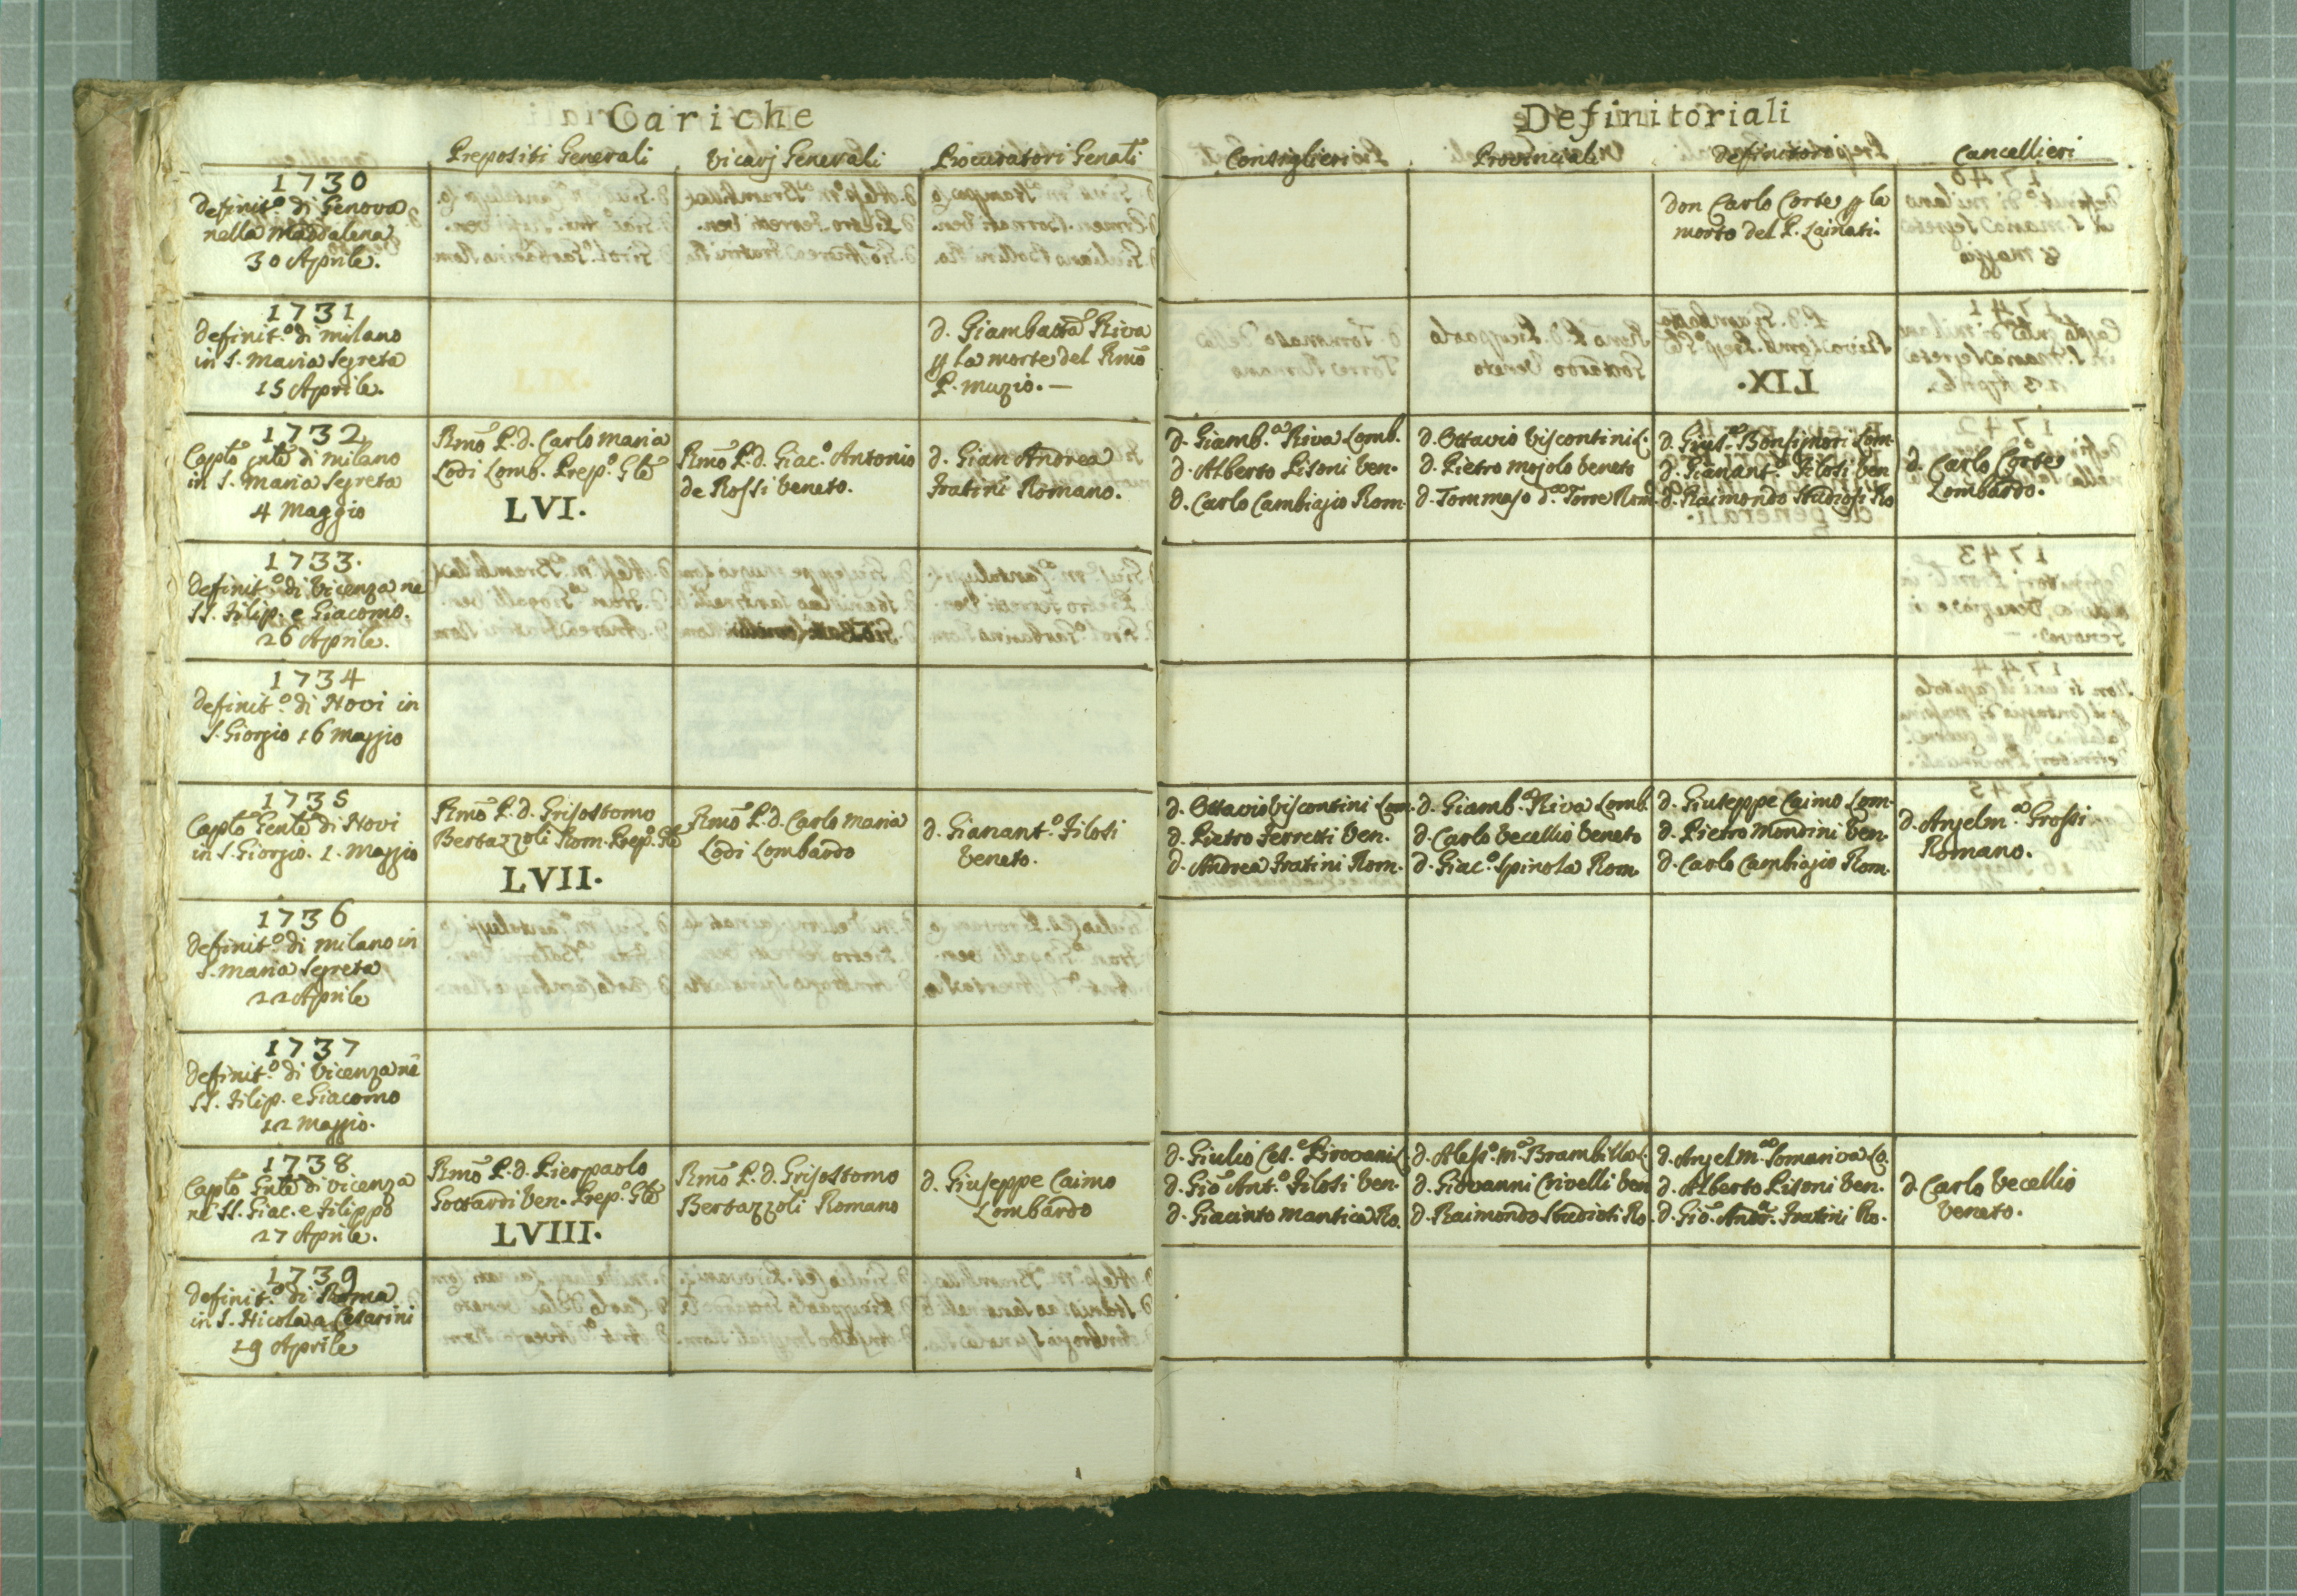 Cariche
Prepositi Generali
Vicarj Generali
Procuratori Genāli
1730
Definit.º di Genova
nella Maddalena
30 Aprile.
1731
Definit.º di Milano
in S. Maria Segreta
15 Aprile.
d. Giambatta Riva
p la morte del Rmō
P. Muzio. —
1732
Capłō Gnłē di Milano
in S. Maria Segreta
4 Maggio
Rmō P. d. Carlo Maria
Lodi Lomb. Prep.º Głē
LVI.
Rmō P. d. Giac.º Antonio
de Rossi Veneto.
d. Gian Andrea
Fratini Romano.
1733.
Definit.º di Vicenza ne
SS. Filip. e Giacomo.
26 Aprile.
1734
Definit.º di Novi in
S. Giorgio 16 Maggio
1735
Capłō Genłē di Novi
in S. Giorgio. 1. Maggio
Rmō P. d. Grisostomo
Bertazzoli Rom. Prep.º Głē
LVII.
Rmō P. d. Carlo Maria
Lodi Lombardo
d. Gianant.º Filosi
Veneto.
1736
Definit.º di Milano in
S. Maria Segreta
22 Aprile
1737
Definit.º di Vicenza nē
SS. Filip. e Giacomo
12 Maggio.
1738
Capłō Gnłē di Vicenza
ne SS. Giac. e Filippo
27 Aprile.
Rmō P. d. Pierpaolo
Gottardi Ven. Prep.º Głē
LVIII.
Rmō P. d. Grisostomo
Bertazzoli Romano
d. Giuseppe Caimo
Lombardo
1739
Definit.º di Roma
in S. Nicola a Cesarini
19 Aprile
Definitoriali
Consiglieri
Provinciali
Definitori
Cancellieri
don Carlo Corte p la
morte del P. Lainati.
d. Giamb.ª Riva Lomb.
d. Alberto Pisoni Ven.
d. Carlo Cambiagio Rom.
d. Ottavio Viscontini L.
d. Pietro Mojolo Veneto
d. Tommaso d.ª Torre Rom.
d. Bonsignori Lom.
d. Gianant.º Filosi Ven
d. Raimondo Studiosi Ro
d. Carlo Corte
Lombardo.
d. Ottavio Viscontini Lom.
d. Pietro Ferretti Ven.
d. Andrea Fratini Rom.
d. Giamb.ª Riva Lomb.
d. Carlo Vecellio Veneto
d. Giac.º Spinola Rom.
d. Giuseppe Caimo Lom.
d. Pietro Mondini Ven.
d. Carlo Cambiagio Rom.
d. Anselm.º Grossi
Romano.
d. Giulio Ces.e Pirovani L.
d. Giō Ant.º Filosi Ven.
d. Giacinto Mantica Ro.
d. Aless.º M.ª Brambilla L.
d. Giovanni Crivelli Ven
d. Raimondo Studiosi Ro.
d. Anselm.º Somariva Lo.
d. Alberto Pisoni Ven.
d. Giō. And.ª Fratini Ro.
d. Carlo Vecellio
Veneto.